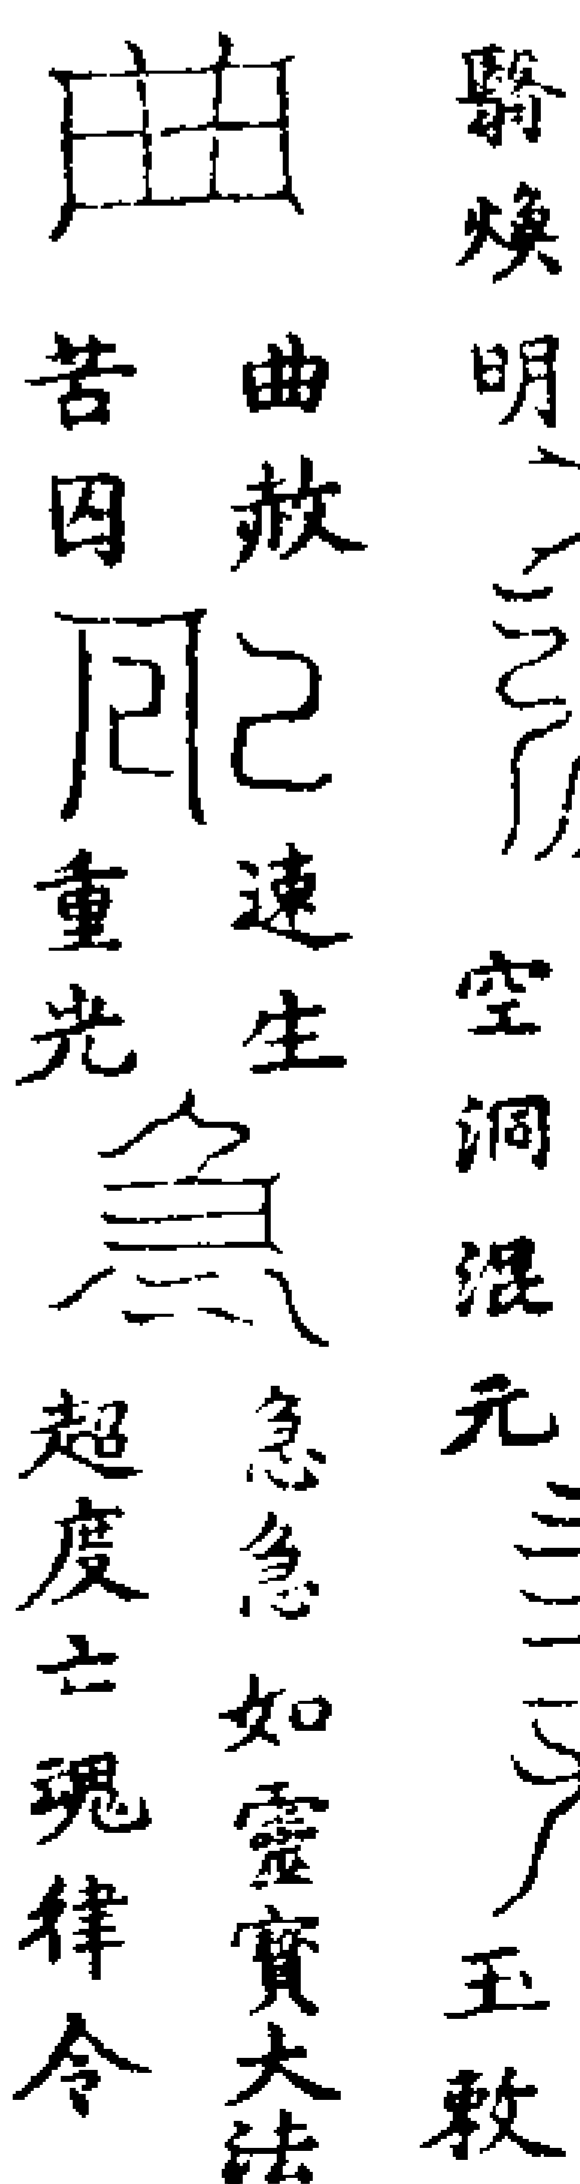 煥明
空洞混元
玉敕
曲赦
速生
急急如靈寶大法
苦囚
重光
超度亡魂律令